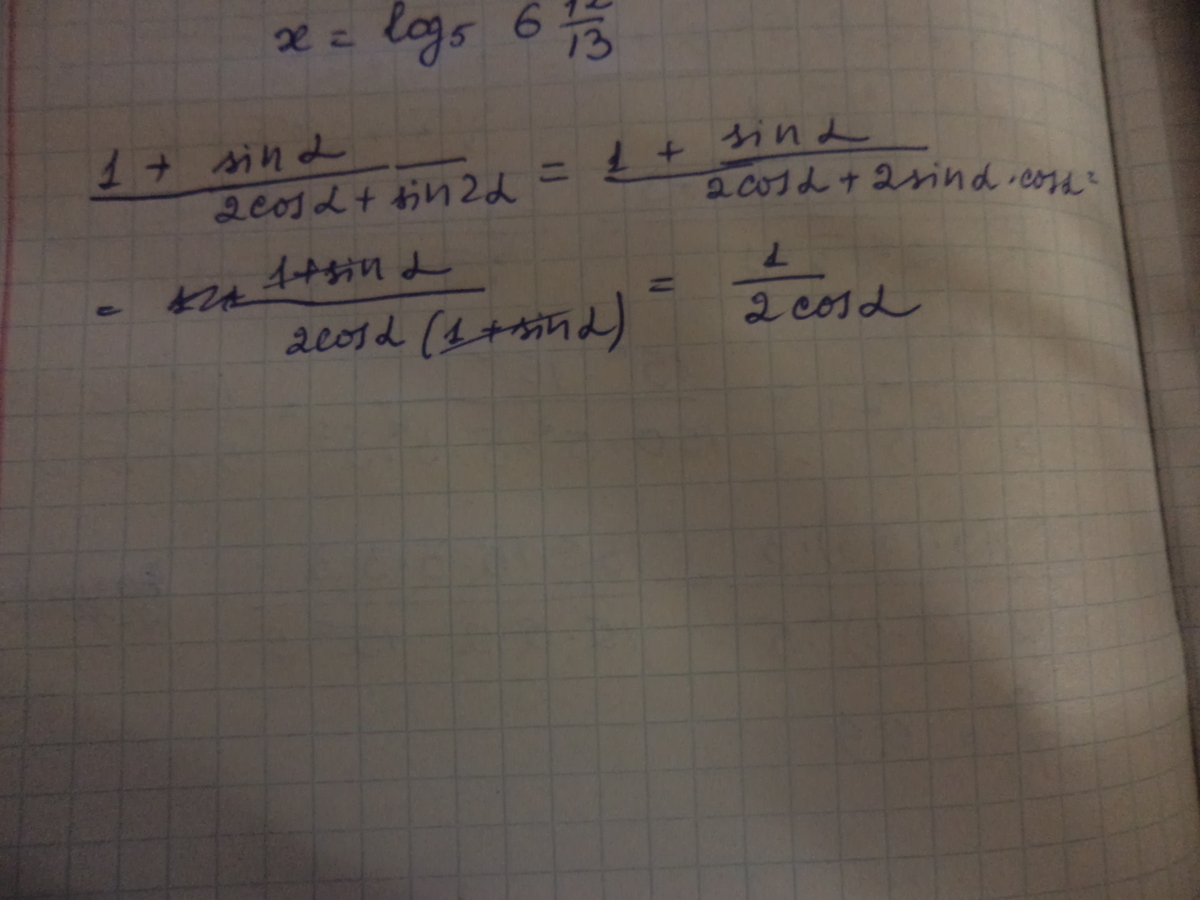 x = log₅ 6 12/13
(1 + sin α)/(2cos α + sin 2α) = (1 + sin α)/(2cos α + 2sin α · cos α) =
= (1 + sin α)/(2cos α (1 + sin α)) = 1/(2 cos α)